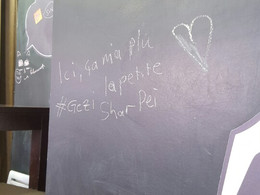 Ici, ça m'a plu
la petite
#Gezi Shar Pei